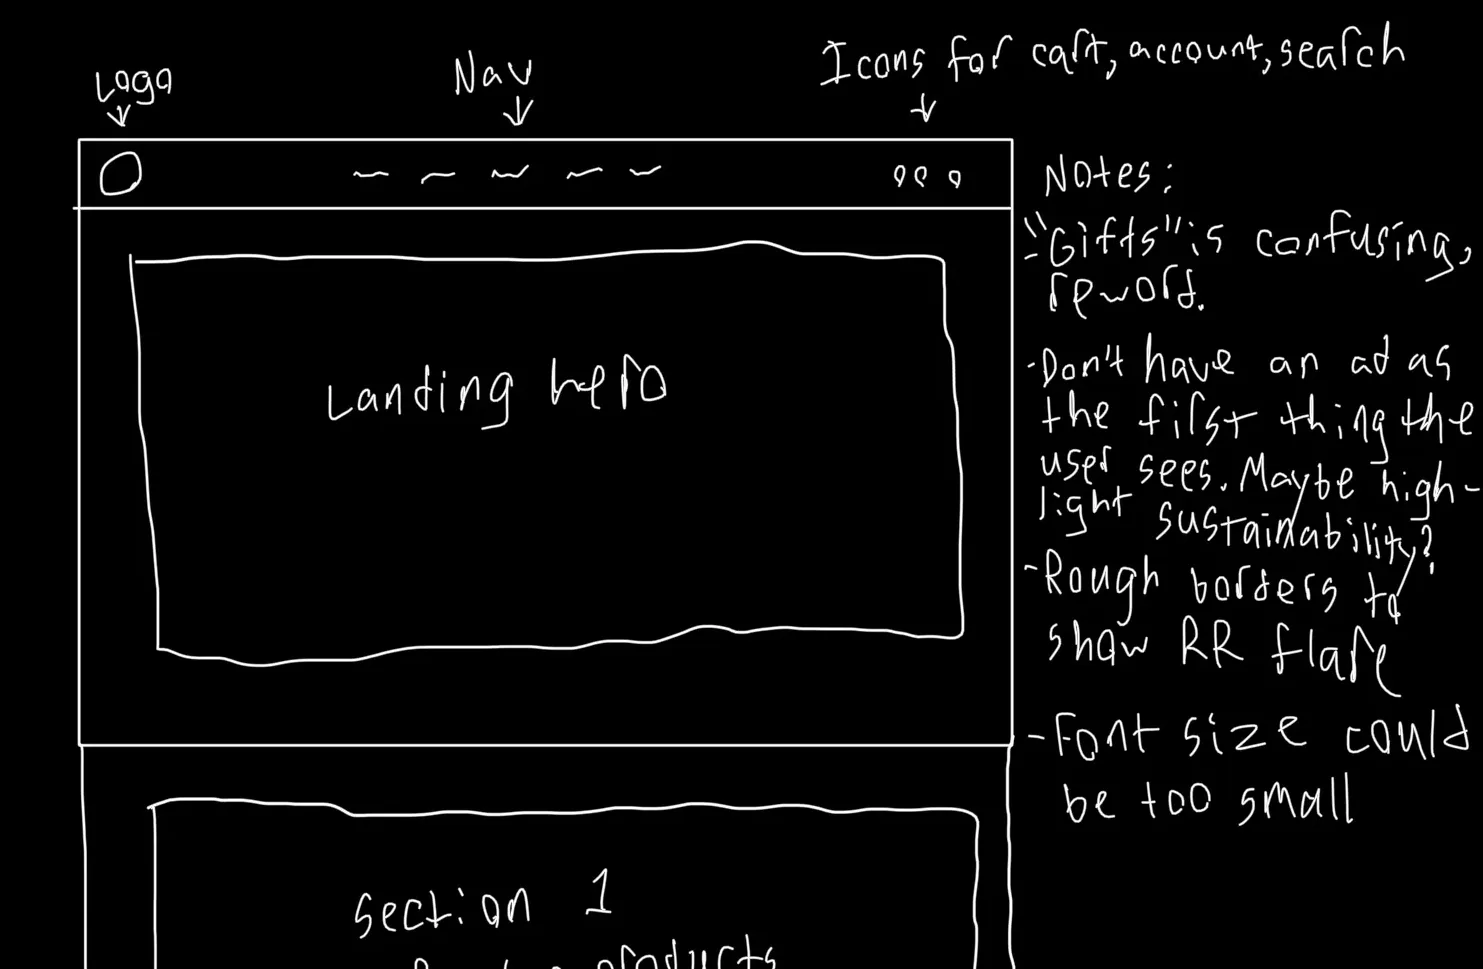 Logo
Nav
Icons for cart, account, search
Landing hero
Section 1
products
Notes:
- "Gifts" is confusing,
reword.
- Don't have an ad as
the first thing the
user sees. Maybe high-
light sustainability?
- Rough borders to
show RR flare
- Font size could
be too small